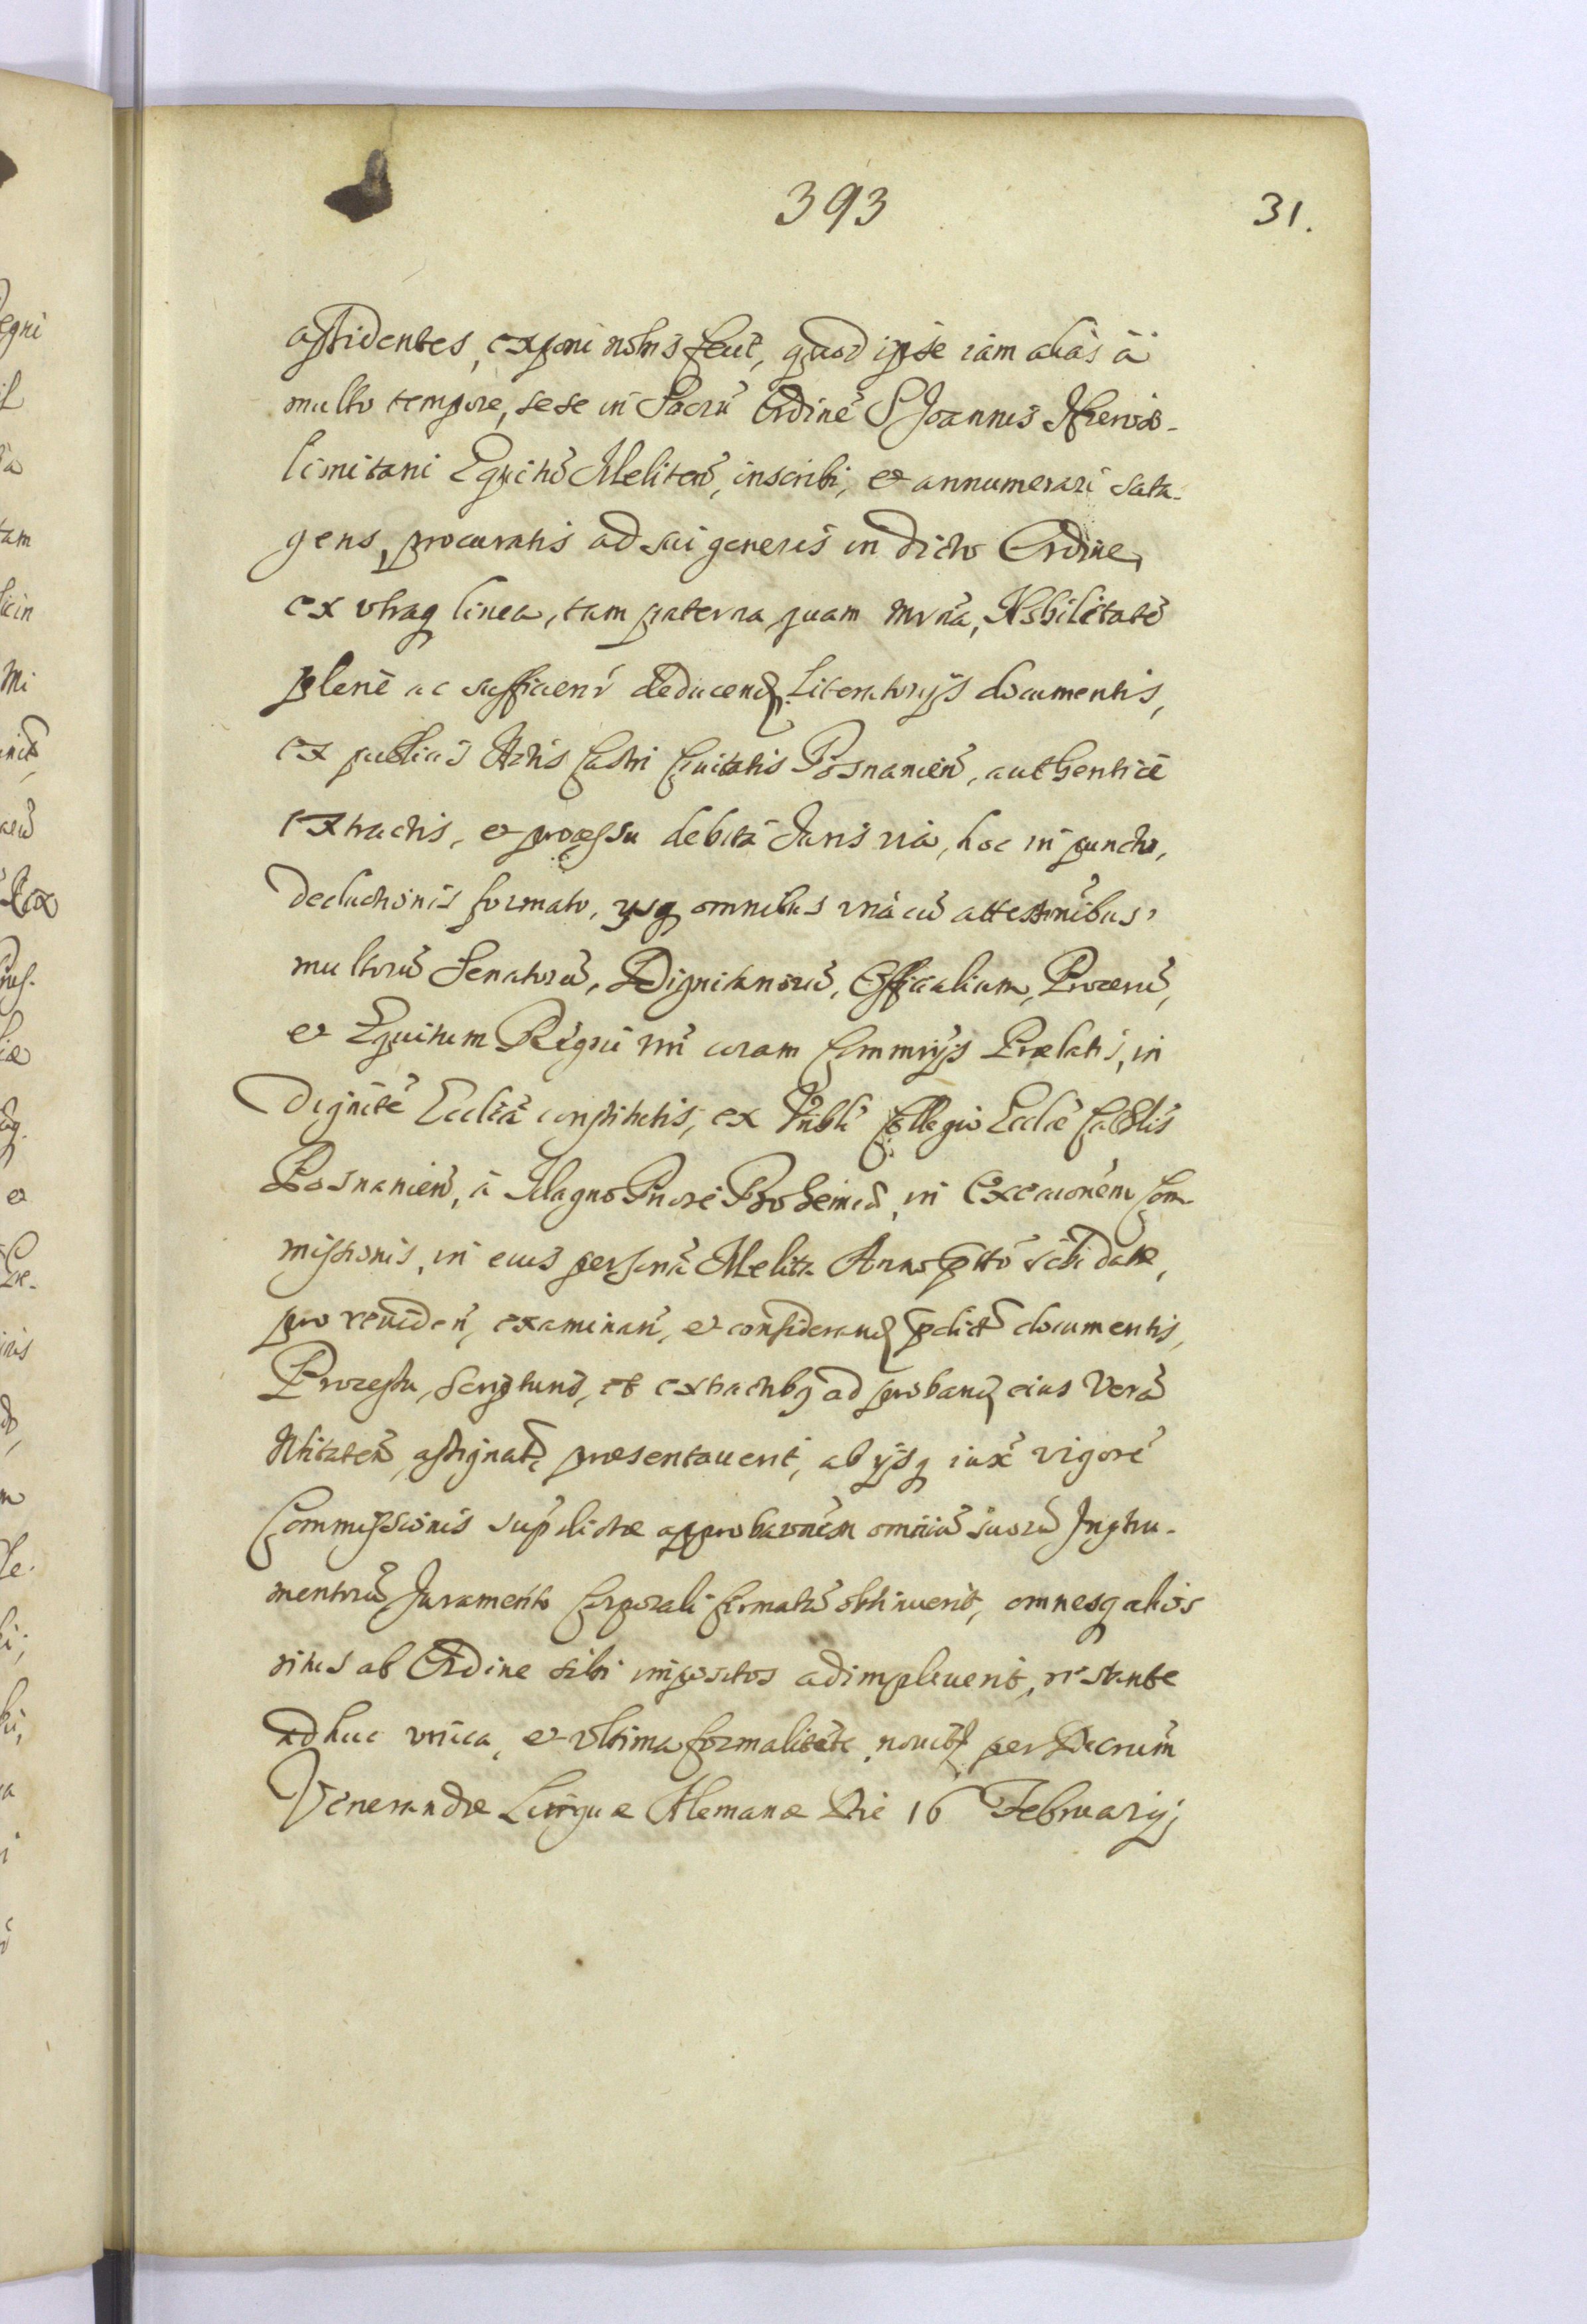 393
31.
assidentes, exponi nobis fecit, quod ipse iam alias à
multo tempore, sese in Sacrũ Ordinẽ S Joannis Hieroso-
limitani Equitũ Meliteñ, inscribi, et annumerari sata-
gens, procuratis ad sui generis in dicto Ordine,
ex utraq linea, tam paterna quam mrna, Nobilitatẽ
plenè ac sufficienr deducend. Literatorijs documentis,
ex publicis Actis Castri Civitatis Posnanień, authenticè
extractis, et processu debitâ Juris via, hoc in puncto,
deductionis formato, ijsq omnibus unà cũ attestonibus,
multorũ Senatorũ, Dignitariorũ, Officialium, Procerũ,
et Equitum Regni nri coram Commrijs Prælatis, in
Dignitẽ Ecclia constitutis, ex Vnbli Collegio Ecclæ Cathlis
Posnanień, à Magno Priore Bohemiæ, in Execuonem Com-
missionis, in eius personã Melitæ Anno sibi datæ,
pro revideñ, examinañ, et considerand pdictis documentis,
Processu, Scripturis, et extractibq ad proband eius verã
Nlitatẽ, assignat præsentaverit, ab ijsq iuxa vigorẽ
Commissionis supdictæ approbaonem omniũ suorũ Instru-
mentorũ Juramento Corporali firmatũ obtinuerit, omnesq alios
ritus ab Ordine sibi impositos adimpleverit, restante
adhuc unica, et ultima formalitate, per Decrum
Venerandæ Linguæ Alemanæ Die 16 Februarij